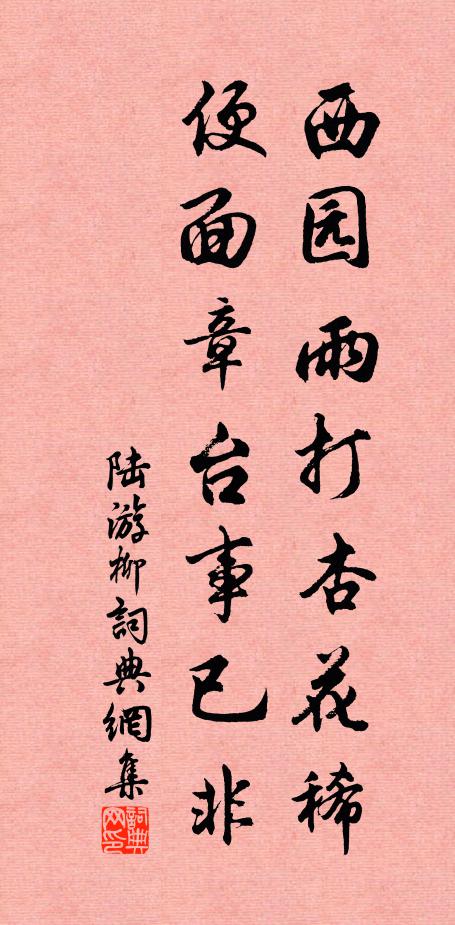 西园雨打杏花稀
便面章台事已非
陆游柳詞典網集
詞典网印